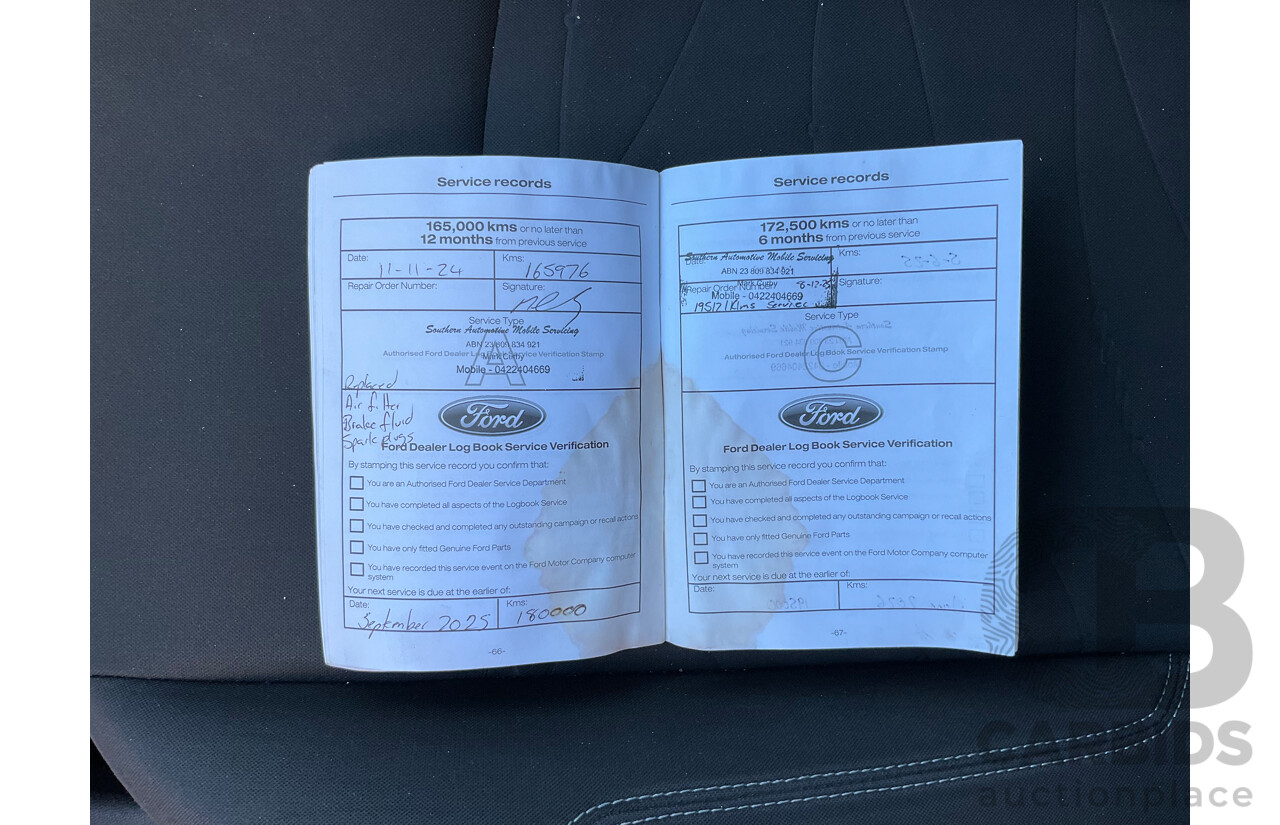 Service records
165,000 kms or no later than
12 months from previous service
Date: 11-11-24
Kms: 165976
Repair Order Number:
Signature:
Service Type
Southern Automotive Mobile Servicing
ABN 23 609 834 921
Authorised Ford Dealer Log Book Service Verification Stamp
Mark Curby
A
Mobile - 0422404669
Replaced
Air filter
Brake fluid
Spark plugs
Ford
Ford Dealer Log Book Service Verification
By stamping this service record you confirm that:
You are an Authorised Ford Dealer Service Department
You have completed all aspects of the Logbook Service
You have checked and completed any outstanding campaign or recall actions
You have only fitted Genuine Ford Parts
You have recorded this service event on the Ford Motor Company computer
system
Your next service is due at the earlier of:
Date: September 2025
Kms: 180000
-66-
Service records
172,500 kms or no later than
6 months from previous service
Date:
Southern Automotive Mobile Servicing
Kms:
ABN 23 609 834 921
Repair Order Number:
Mark Curby
Signature:
Mobile - 0422404669
195171kms Service
Service Type
Authorised Ford Dealer Log Book Service Verification Stamp
C
Ford
Ford Dealer Log Book Service Verification
By stamping this service record you confirm that:
You are an Authorised Ford Dealer Service Department
You have completed all aspects of the Logbook Service
You have checked and completed any outstanding campaign or recall actions
You have only fitted Genuine Ford Parts
You have recorded this service event on the Ford Motor Company computer
system
Your next service is due at the earlier of:
Date:
Kms:
-67-
B
CARBIDS
auctionplace